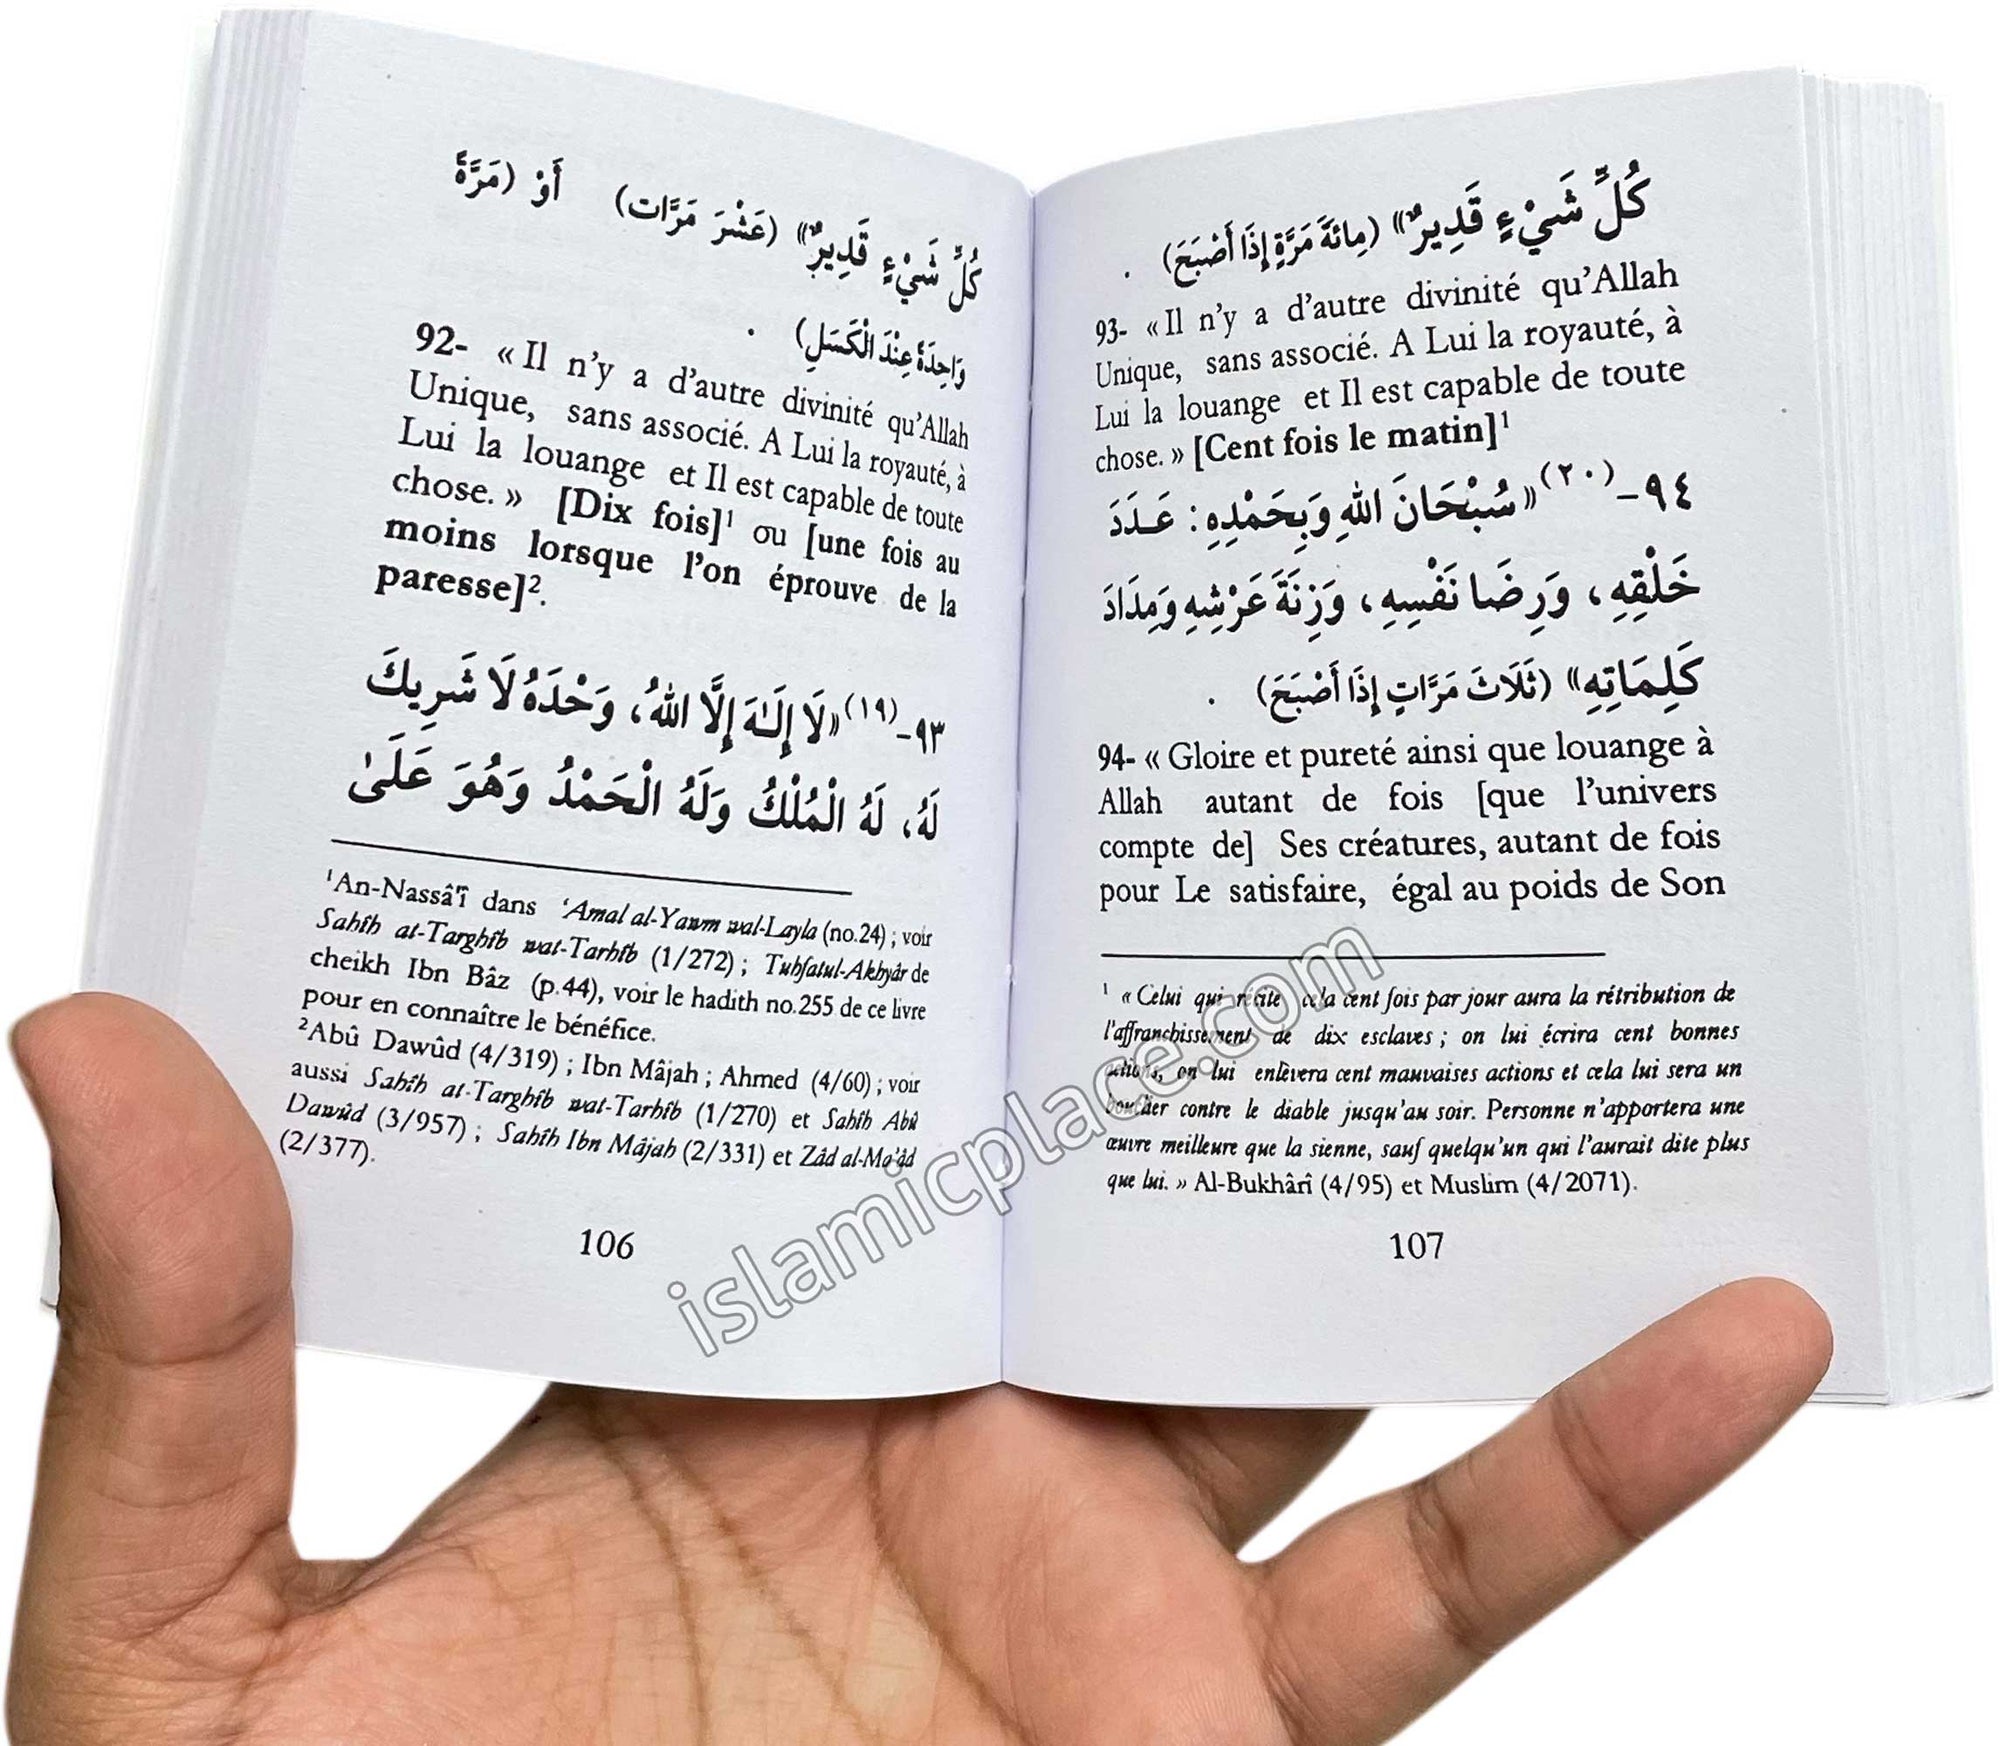 كُلِّ شَيْءٍ قَدِيرٌ» (عَشْرَ مَرَّات) أَوْ (مَرَّةً
وَاحِدَةً عِنْدَ الْكَسَلِ) .
92- « Il n’y a d’autre divinité qu’Allah
Unique, sans associé. A Lui la royauté, à
Lui la louange et Il est capable de toute
chose. » [Dix fois]¹ ou [une fois au
moins lorsque l’on éprouve de la
paresse]².
٩٣-(١٩)«لَا إِلَـٰهَ إِلَّا اللهُ، وَحْدَهُ لَا شَرِيكَ
لَهُ، لَهُ الْمُلْكُ وَلَهُ الْحَمْدُ وَهُوَ عَلَىٰ
¹An-Nassâ'î dans ‘Amal al-Yawm wal-Layla (no.24) ; voir
Sahîh at-Targhîb wat-Tarhîb (1/272) ; Tuhfatul-Akhyâr de
cheikh Ibn Bâz (p.44), voir le hadith no.255 de ce livre
pour en connaître le bénéfice.
²Abû Dawûd (4/319) ; Ibn Mâjah ; Ahmed (4/60) ; voir
aussi Sahîh at-Targhîb wat-Tarhîb (1/270) et Sahîh Abû
Dawûd (3/957) ; Sahîh Ibn Mâjah (2/331) et Zâd al-Ma’âd
(2/377).
106
كُلِّ شَيْءٍ قَدِيرٌ» (مِائَةَ مَرَّةٍ إِذَا أَصْبَحَ) .
93- « Il n’y a d’autre divinité qu’Allah
Unique, sans associé. A Lui la royauté, à
Lui la louange et Il est capable de toute
chose. » [Cent fois le matin]¹
٩٤-(٢٠)«سُبْحَانَ اللهِ وَبِحَمْدِهِ: عَـدَدَ
خَلْقِهِ، وَرِضَا نَفْسِهِ، وَزِنَةَ عَرْشِهِ وَمِدَادَ
كَلِمَاتِهِ» (ثَلَاثَ مَرَّاتٍ إِذَا أَصْبَحَ) .
94- « Gloire et pureté ainsi que louange à
Allah autant de fois [que l’univers
compte de] Ses créatures, autant de fois
pour Le satisfaire, égal au poids de Son
¹ « Celui qui récite cela cent fois par jour aura la rétribution de
l’affranchissement de dix esclaves ; on lui écrira cent bonnes
actions, on lui enlèvera cent mauvaises actions et cela lui sera un
bouclier contre le diable jusqu’au soir. Personne n’apportera une
œuvre meilleure que la sienne, sauf quelqu’un qui l’aurait dite plus
que lui. » Al-Bukhârî (4/95) et Muslim (4/2071).
107
islamicplace.com